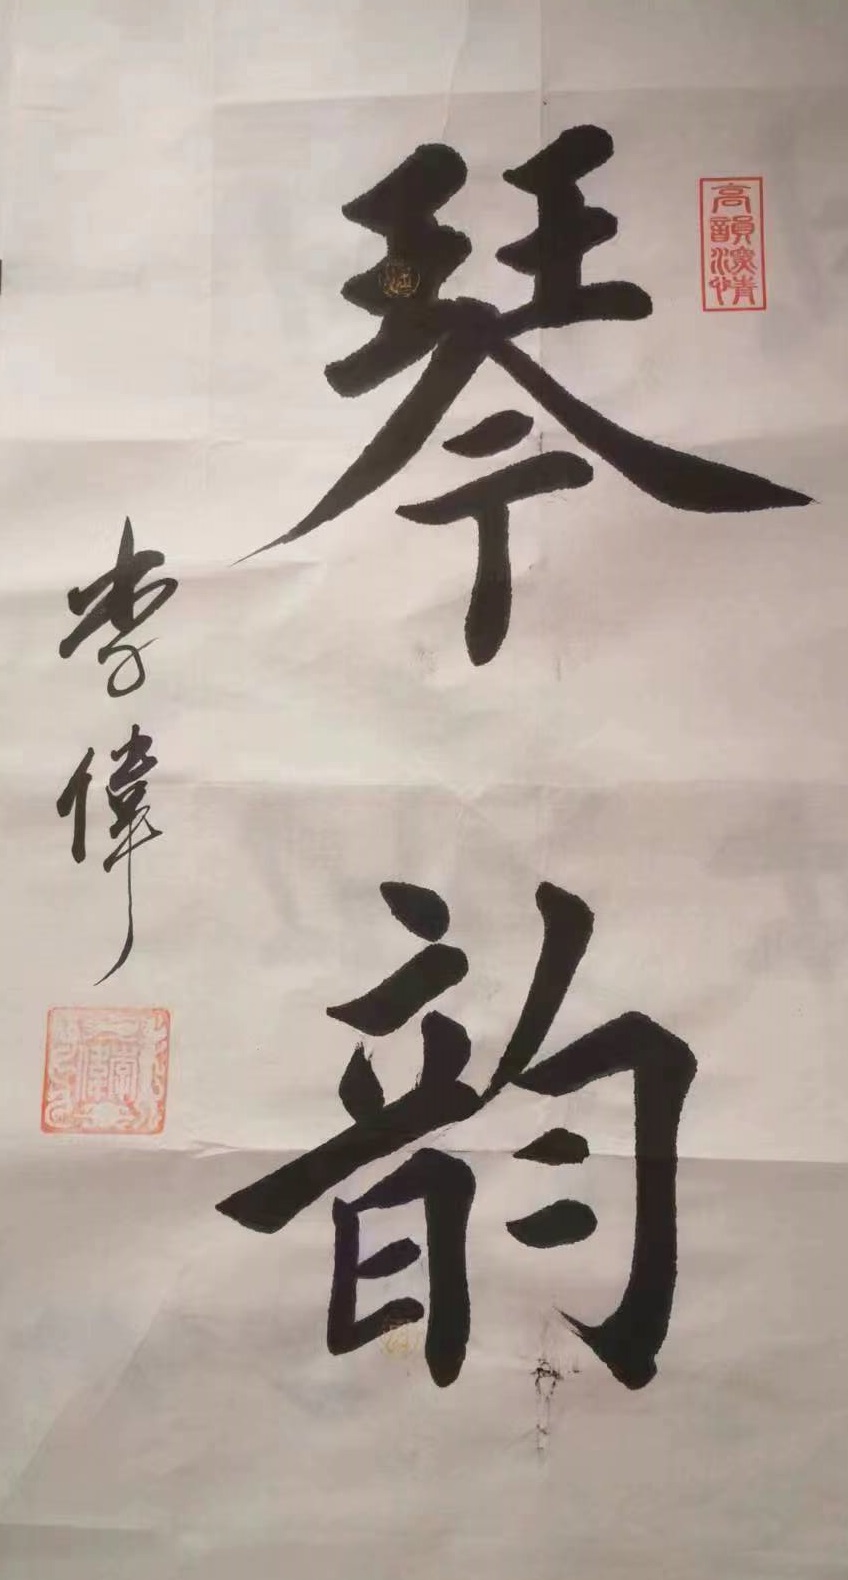 琴韵
高韻深情
李偉